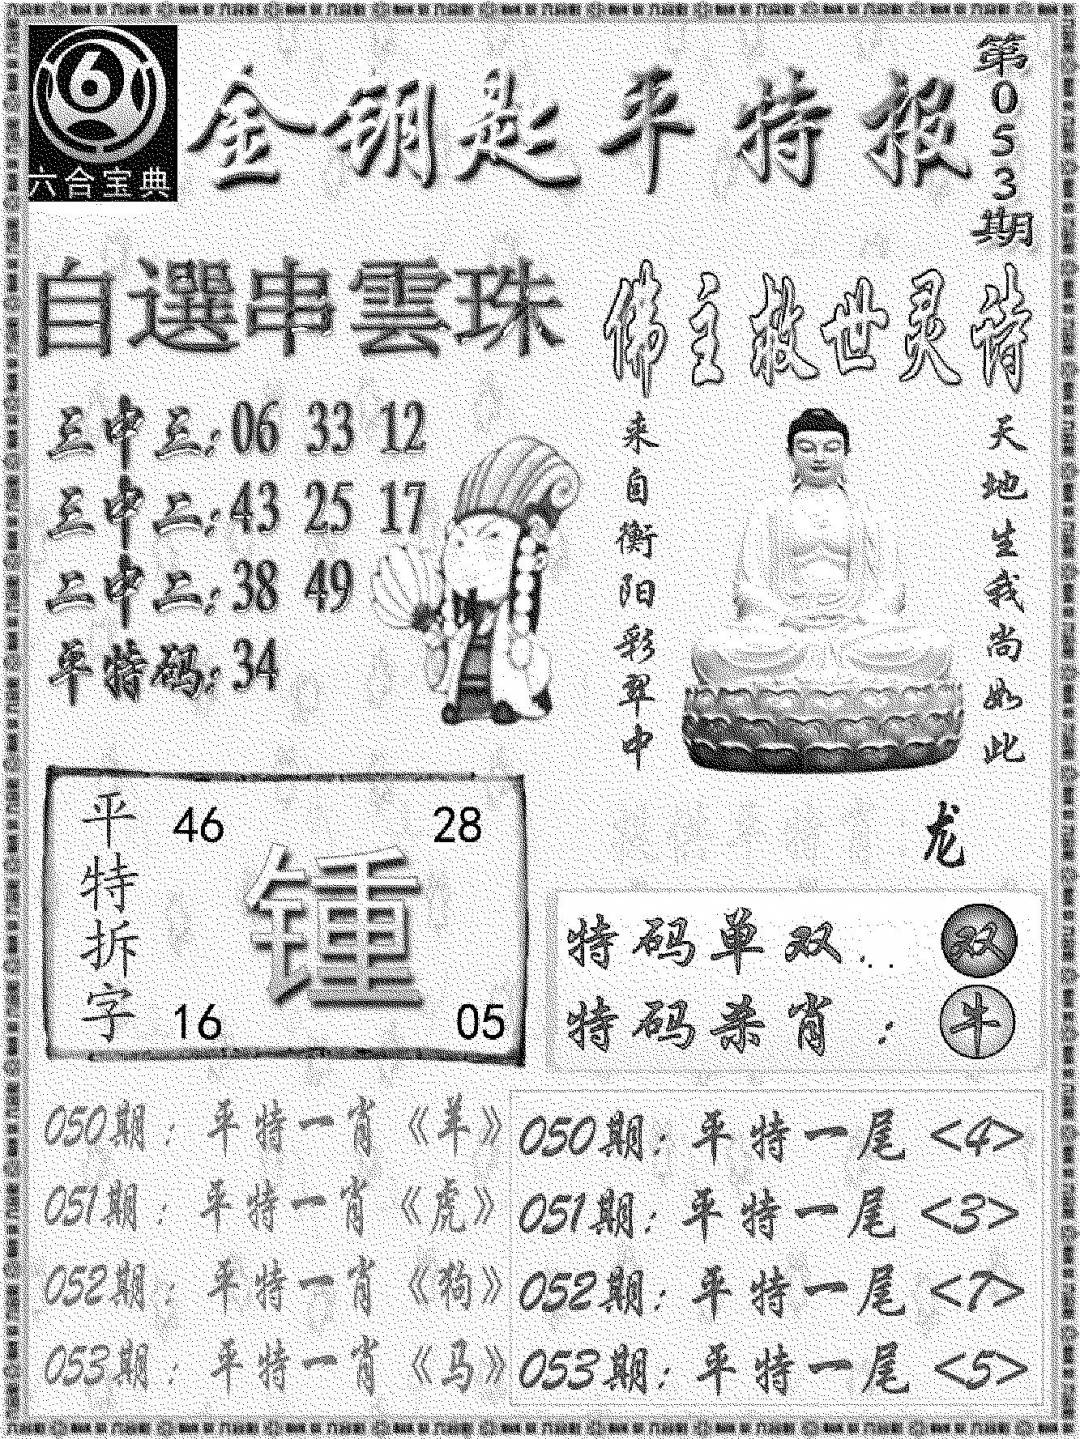 6
六合宝典
金钥匙平特报
第053期
自選串雲珠
三中三:06 33 12
三中二:43 25 17
二中二:38 49
单特码:34
佛主救世灵诗
来自衡阳彩翠中
天地生我尚如此
龙
平特拆字
46
28
锺
16
05
特码单双...双
特码杀肖:牛
050期:平特一肖《羊》
051期:平特一肖《虎》
052期:平特一肖《狗》
053期:平特一肖《马》
050期:平特一尾<4>
051期:平特一尾<3>
052期:平特一尾<7>
053期:平特一尾<5>